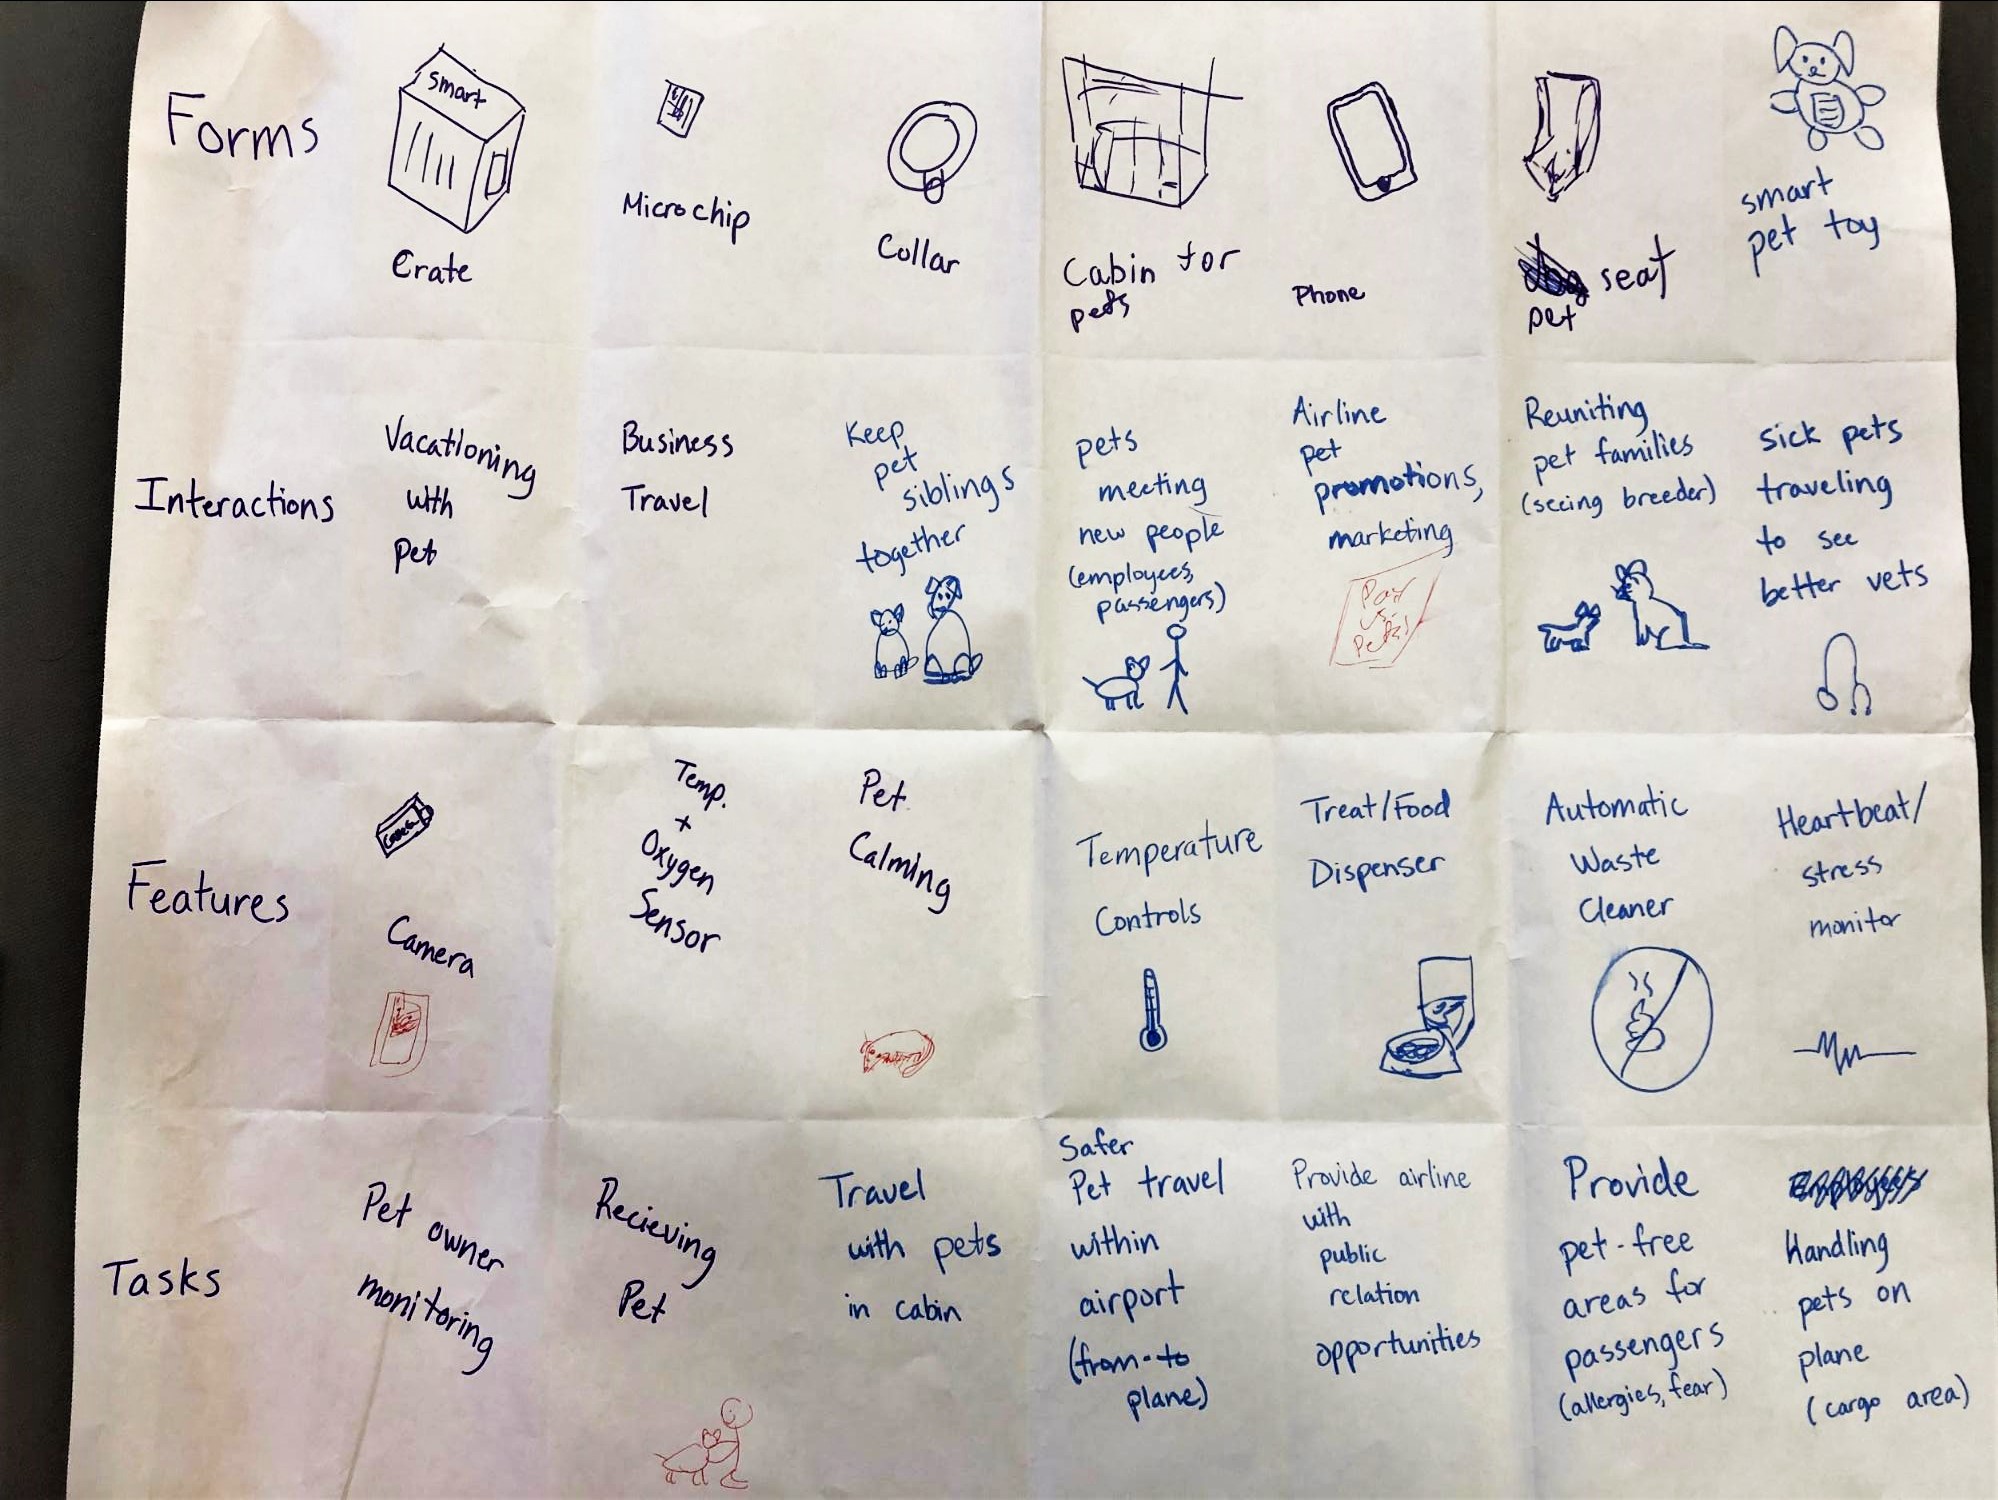 Forms
smart
Crate
Microchip
Collar
Cabin for
pets
Phone
seat
pet
smart
pet toy
Interactions
Vacationing
with
Pet
Business
Travel
Keep
pet
siblings
together
pets
meeting
new people
(employees,
passengers)
Airline
pet
promotions,
marketing
Reuniting
pet families
(seeing breeder)
sick pets
traveling
to see
better vets
Features
Camera
Temp.
+
Oxygen
Sensor
Pet
Calming
Temperature
Controls
Treat/Food
Dispenser
Automatic
Waste
Cleaner
Heartbeat/
stress
monitor
Tasks
Pet owner
monitoring
Recieving
Pet
Travel
with pets
in cabin
Safer
Pet travel
within
airport
(from-to
plane)
Provide airline
with
public
relation
opportunities
Provide
pet-free
areas for
passengers
(allergies, fear)
Handling
pets on
plane
(cargo area)